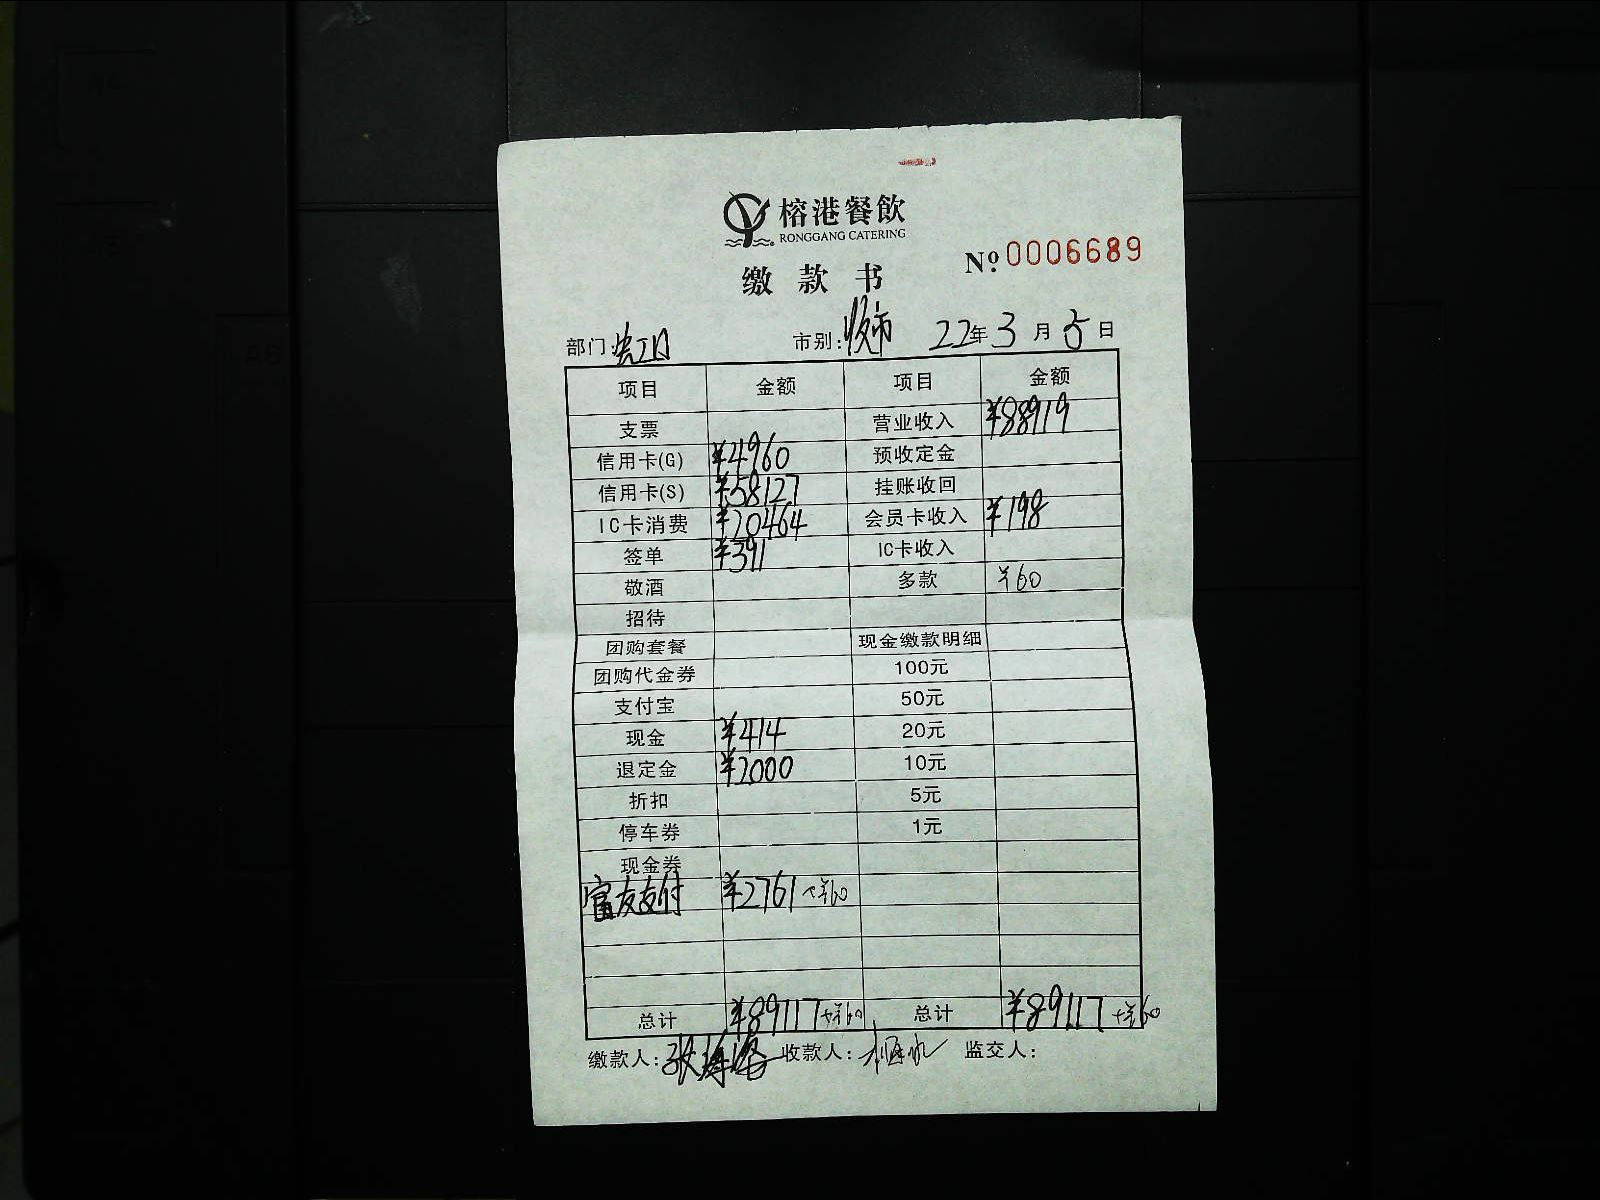 榕港餐飲
RONGGANG CATERING
缴款书 №.0006689
部门: 虹口 市别: 晚市 22年3月5日
项目 金额 项目 金额
支票 营业收入 ¥88919
信用卡(G) ¥4960 预收定金
信用卡(S) ¥58127 挂账收回
IC卡消费 ¥20464 会员卡收入 ¥198
签单 ¥391 IC卡收入
敬酒 多款 ¥60
招待
团购套餐 现金缴款明细
团购代金券 100元
支付宝 50元
现金 ¥414 20元
退定金 ¥2000 10元
折扣 5元
停车券 1元
现金券
富友支付 ¥2761 +¥60
总计 ¥89117 +¥60 总计 ¥89117 +¥60
缴款人: 收款人: 监交人: